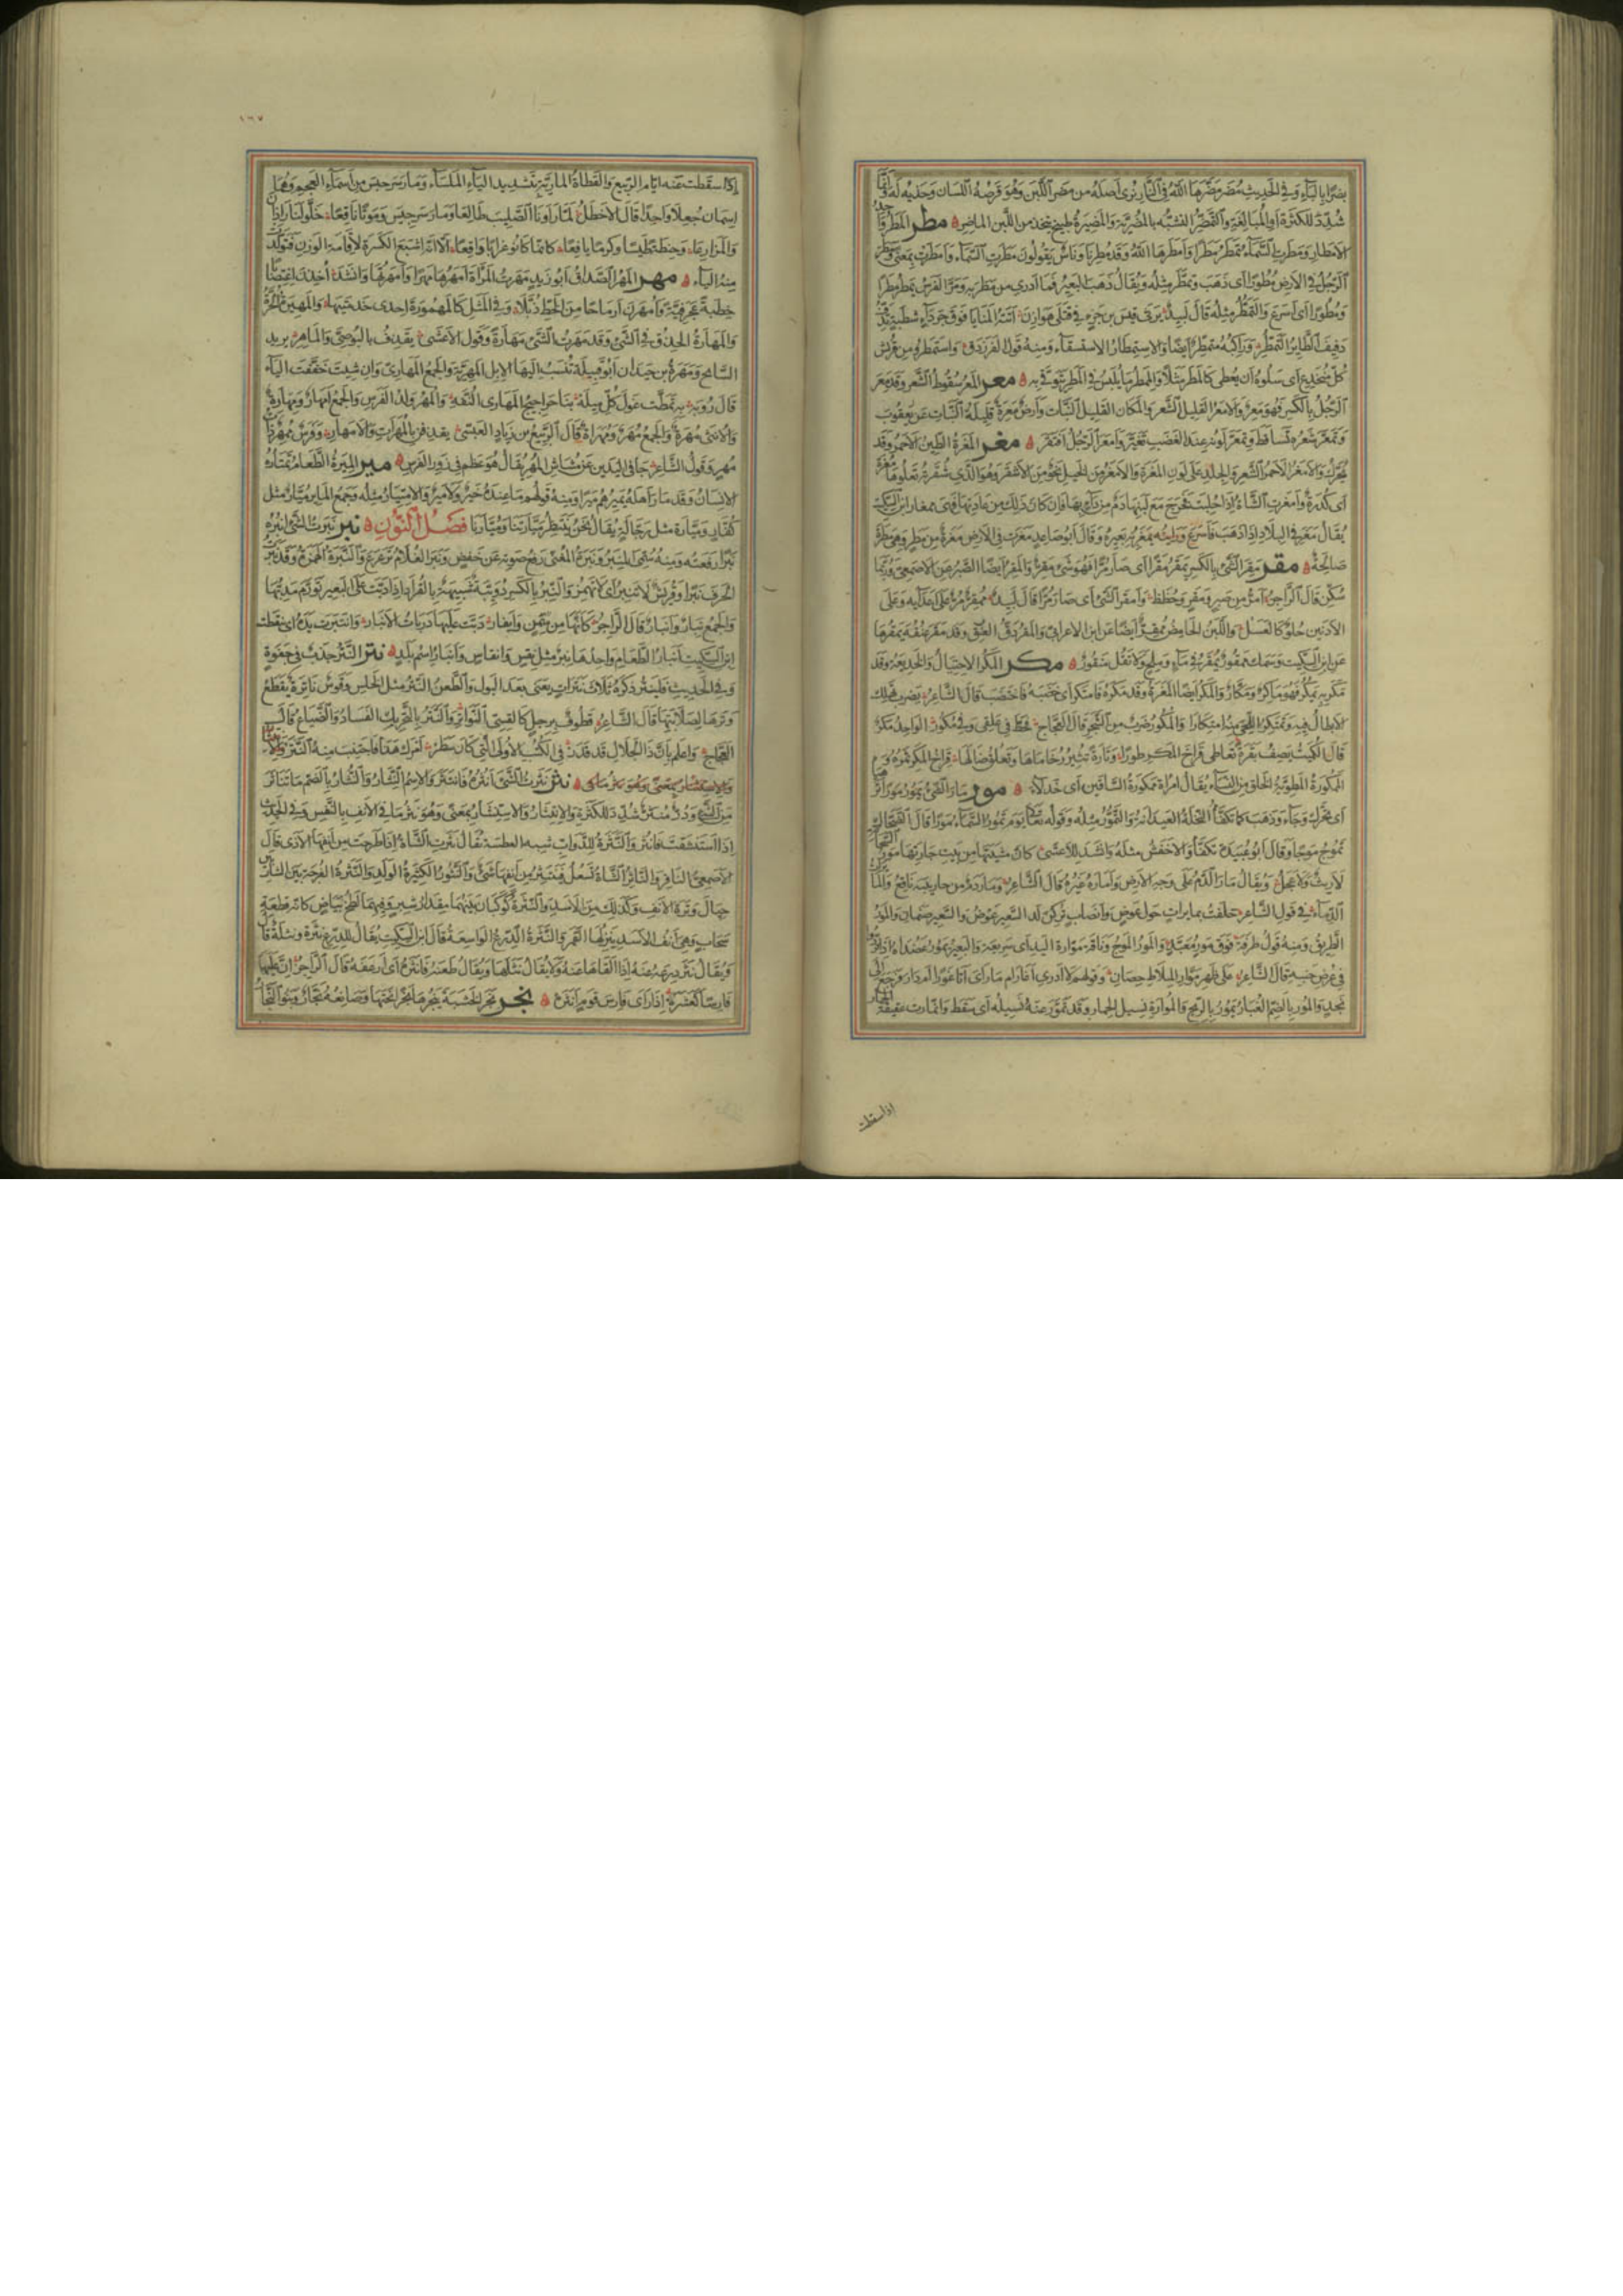 بضرًا بالباء وفي الحديث مضر مضّرها الله في النار نرى اصله من مضر اللبن وهو قرصه اللسان وحذيه له وانما
شدد للكثرة او المبالغة والتمضّر التشبه بالمضريّة والمضيرة طبيخ يتخذ من اللبن الماضر مطر المطر واحد
الامطار ومطرت السماء تمطر مطرًا وامطرها الله وقد مطرنا وناس يقولون مطرت السماء وامطرت بمعنى ومطر
الرجل في الارض مطورًا اى ذهب وتمطّر مثله ويقال ذهب البعير فما ادرى من مطر به ومرّ الفرس يمطر مطرًا
ومطورًا اى اسرع والتمطّر مثله قال لبيد يرثى قيس بن جزء في قتلى هوازن اتته المنايا فوق جرداء شطبة تدفّ
دفيف الطائر المتمطّر وراكبه متمطّر ايضًا والاستمطار الاستسقاء ومنه قول الفرزدق واستمطروا من قريش
كلّ منخدع اى سلوه ان يعطى كالمطر مثلًا والممطر ما يلبس في المطر يتوقّى به معر المعر سقوط الشعر وقد معر
الرجل بالكسر فهو معر والامعر القليل الشعر والمكان القليل النبات وارض معرة قليلة النبات عن يعقوب
وتمعّر شعره تساقط وتمعّر لونه عند الغضب تغيّر وامعر الرجل افتقر مغر المغرة الطين الاحمر وقد
يحرّك والامغر الاحمر الشعر والجلد على لون المغرة والامغر من الخيل نحو من الاشقر وهو الذى شقرته تعلوها مغرة
اى كدرة وامغرت الشاة اذا حلبت فخرج مع لبنها دم من داء بها فان كان ذلك من عادتها فهى ممغار ابن السكيت
يقال مغر في البلاد اذا ذهب فاسرع ورايته يمغر به بعيره وقال ابو صاعد مغرت في الارض مغرة من مطر وهى مطرة
صالحة مقر مقر الشىء بالكسر يمقر مقرًا اى صار مرًّا فهو شىء مقر والمقر ايضًا الصبر عن الاصمعى وربما
سكّن قال الراجز امرّ من صبر ومقر وحظظ وامقر الشىء اى صار مرًّا قال لبيد ممقر مرّ على اعدائه وعلى
الادنين حلو كالعسل واللبن الحامض ممقر ايضًا عن ابن الاعرابى والمقر دق العنق وقد مقر عنقه يمقرها
عن ابن السكيت وسمك ممقور يمقر في ماء وملح ولا تقل منقور مكر المكر الاحتيال والخديعة وقد
مكر به يمكر فهو ماكر ومكّار والمكر ايضًا المغرة وقد مكره فامتكر اى خضبه فاختضب قال الشاعر بضرب تهلك
الابطال فيه وتمتكر اللحى منه امتكارا والمكور ضرب من الشجر قال العجاج يحطّ في علقى وفي مكور الواحد مكر
قال الكميت يصف بقرة تعاطى فراخ المكر طورًا وتارة تثير رخاماها وتعلق ضالها فراخ المكر ثمره و
الممكورة المطوية الخلق من النساء يقال امراة ممكورة الساقين اى خدلاء مور مار الشىء يمور مورًا
اى تحرّك وجاء وذهب كما تكفّأ النخلة العيدانة والتموّر مثله وقوله تعالى يوم تمور السماء مورا قال الضحاك
تموج موجًا وقال ابو عبيدة تكفّأ والاخفش مثله وانشد للاعشى كانّ مشيتها من بيت جارتها مور السحابة
لا ريث ولا عجل ويقال مار الدم على وجه الارض واماره غيره قال الشاعر
الدماء في قول الشاعر حلفت بمايرات حول عوض وانصاب تركن لدا السعير عوض والسعير صنمان والمور
الطريق ومنه قول طرفة فوق مور معبّد والمور الموج وناقة موّارة اليد اى سريعة والبعير يمور عضداه
في عرض جنبه قال الشاعر على ظهر موّار الملاط حصان وقولهم لا ادرى اغار ام مار اى اتا غورًا ام دار فرجع الى
نجد والمور بالضم الغبار يمور بالريح والموارة نسيل الحمار وقد تموّر عنه نسيله اى سقط وانمارت عقيقة الحمار
اذا سقطت
١٦٧
اذا سقطت عنه ايام الربيع والقطاة الماريّة بتشديد الياء الملساء ومارسرجس من اسماء العجم وهما
اسمان جعلا واحدًا قال الاخطل لما راونا الصليب طالعا ومارسرجس وموتًا ناقعا خلّوا لنا راذان
والمزارعا وحنطة طيسا وكرما يانعا كانما كانوا غرابا واقعا الا انه اشبع الكسرة لاقامة الوزن فتولّدت
منه الياء مهر المهر الصداق ابو زيد مهرت المراة امهرها مهرا وامهرتها وانشد اخذن اغتصابا
خطبة عجرفيّة وامهرن ارماحا من الخط ذبّلا وفي المثل كالممهورة احدى خدمتيها والمهيرة الحرّة
والمهارة الحذق في الشىء وقد مهرت الشىء مهارة وقول الاعشى يقذف بالبوصى والماهر يريد
السابح ومهرة بن حيدان ابو قبيلة تنسب اليها الابل المهريّة والجمع المهارى وان شيت خففت الياء
قال رؤبة به تمطّت غول كلّ ميله بنا حراجيج المهارى النفّه والمهر ولد الفرس والجمع امهار ومهارة
والانثى مهرة والجمع مهر ومهرات قال الربيع بن زياد العبسى يقذفن بالمهرات والامهار وفرس ممهر ذات
مهر وقول الشاعر جافى اليدين عن مشاش المهر يقال هو عظم في زور الفرس مير الميرة الطعام يمتاره
الانسان وقد مار اهله يميرهم ميرا ومنه قولهم ما عنده خير ولا مير والامتيار مثله وجمع الماير ميّار مثل
كفّار وميّارة مثل رجّالة يقال نحن ننتظر ميّارتنا وميّارنا فصل النون نبر نبرت الشىء انبره
نبرًا رفعته ومنه سمّى المنبر ونبرة المغنى رفع صوته عن خفض ونبر الغلام ترعرع والنبرة الهمزة وقد نبرت
الحرف نبرًا وقريش لا تنبر اى لا تهمز والنبر بالكسر دويبّة شبيهة بالقراد اذا دبّت على البعير تورّم مدبّها
والجمع نبار وانبار قال الراجز كانها من سمن وايفار دبّت عليها ذربات الانبار وانتبرت يده اى تنفّطت
ابن السكيت انبار الطعام واحدها نبر مثل نقس وانقاس وانبار اسم بلد نتر النتر جذب في جفوة
وفي الحديث فلينتر ذكره ثلاث نترات يعنى بعد البول والطعن النتر مثل الخلس وقوس ناترة يقطع
وترها لصلابتها قال الشاعر قطوف برجل كالقسى النواتر والنتر بالتحريك الفساد والضياع قال
العجاج واعلم بان ذا الجلال قد قدر في الكتب الاولى التى كان سطر امرك هذا فاجتنب منه النتر
نثر نثرت الشىء انثره فانتثر والاسم النثار والنثار بالضم ما تناثر
من الشىء ودرّ منثّر شدّد للكثرة والانتثار والاستنثار بمعنى وهو نثر ما في الانف بالنفس وفي الحديث
اذا استنشقت فانثر والنثرة للدواب شبه العطسة يقال نثرت الشاة اذا طرحت من انفها الاذى قال
الاصمعى النافر والناثر الشاة تسعل فينتثر من انفها شىء والنثور الكثيرة الولد والنثرة الفرجة بين الشاربين
حيال وترة الانف وكذلك من الاسد والنثرة كوكبان بينهما مقدار شبر وفيهما لطخ بياض كانه قطعة
سحاب وهى انف الاسد ينزلها القمر والنثرة الدرع الواسعة قال ابن السكيت يقال للدرع نثرة ونثلة
ويقال نثر درعه عنه اذا القاها عنه ولا يقال نثلها ويقال طعنه فانثره اى ارعفه قال الراجز انّ عليها
فارسًا كعشره اذا راى فارس قوم انثره نجر نجر الخشبة ينجرها نجرًا نحتها وصانعه نجّار وبنو النجار